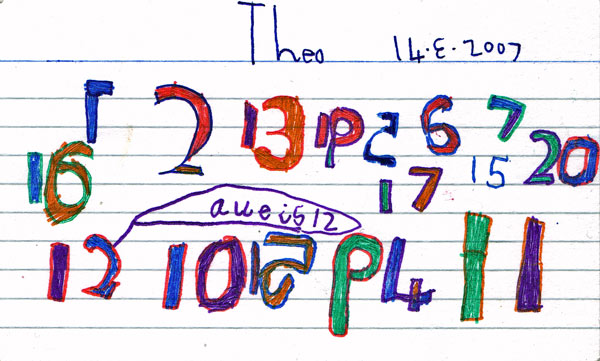 Theo 14.3.2007
1 2 13 19 5 6 7
16 17 15 20
aueis12
12 10 9 4 11